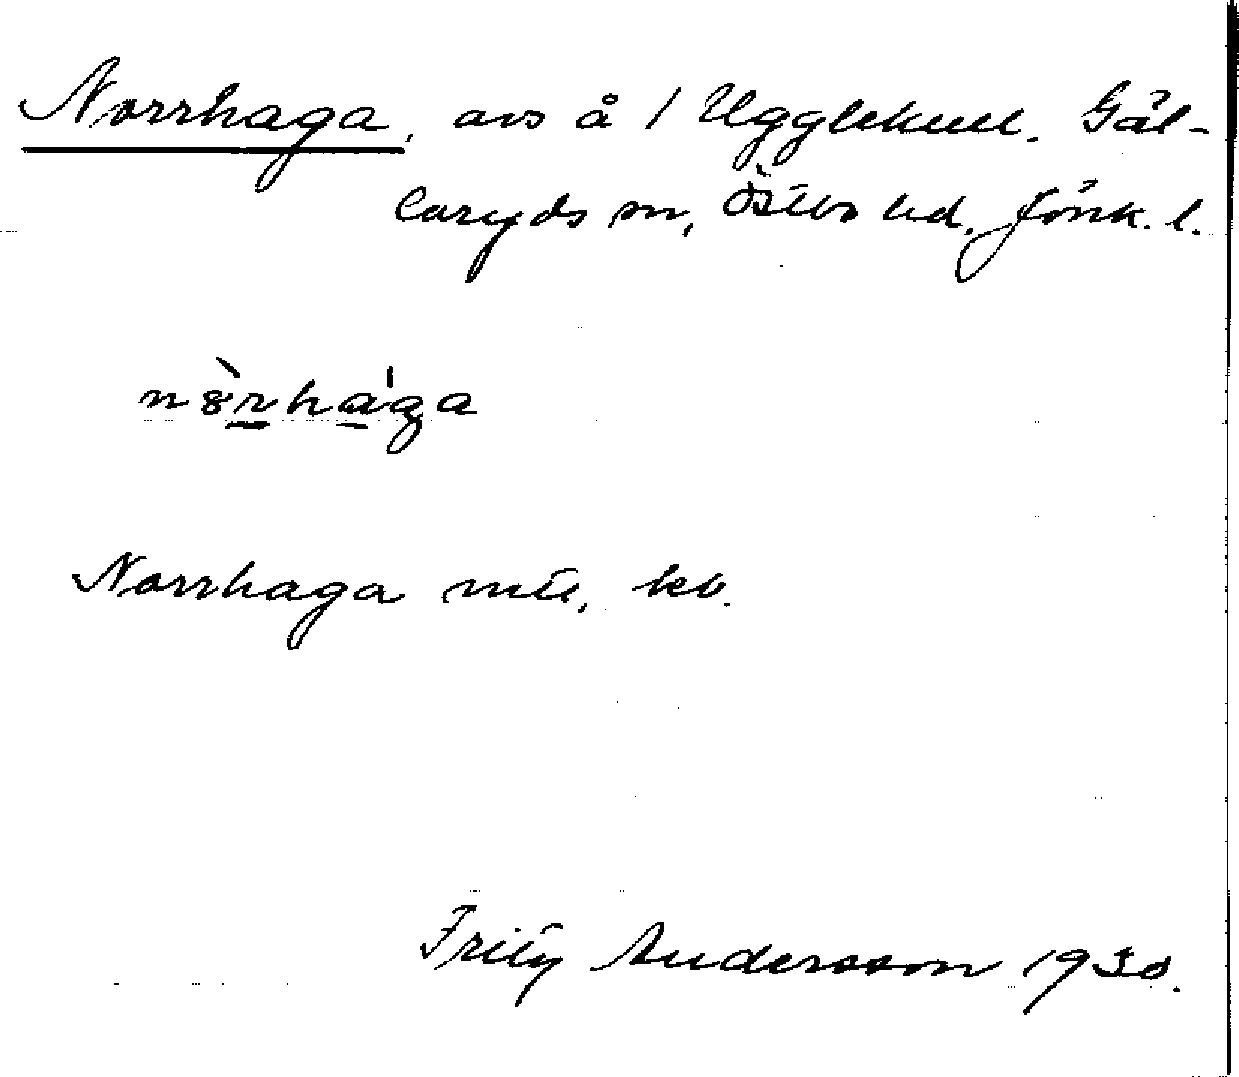 Norrhaga, avs å 1 Ugglekull. Gäl-
laryds sn, Östbo hd. Jönk. l.
nòrha'ga
Norrhaga mtl, kb.
Fritz Andersson 1930.